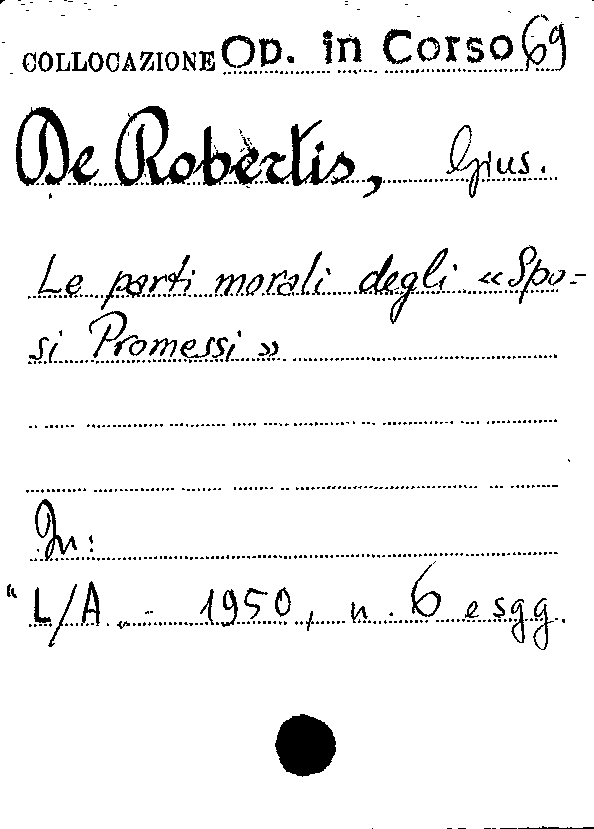 COLLOCAZIONE Op. in Corso 69
De Robertis, Gius.
Le parti morali degli «Spo=
si Promessi»
In:
"L/A„ - 1950, n. 6 e sgg.